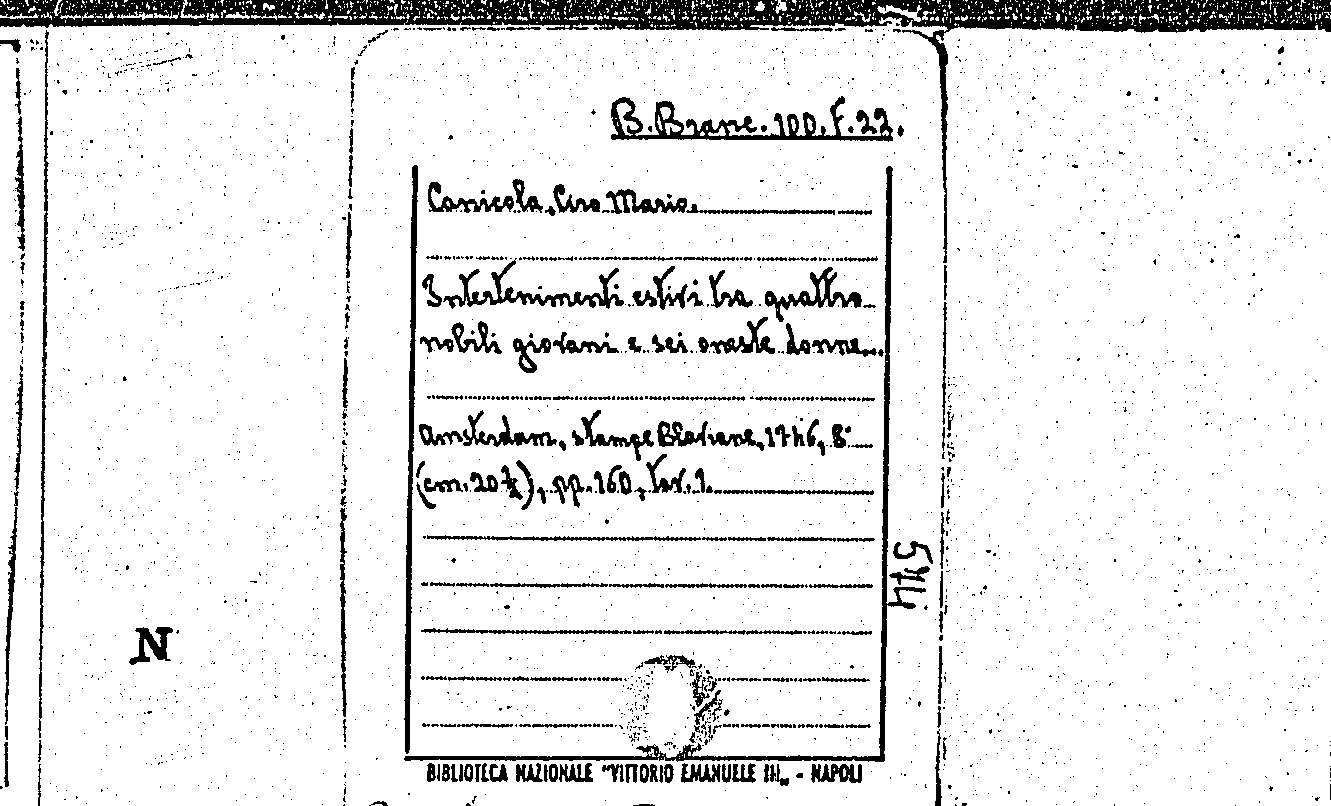 B.Branc.100.F.22.
Canicola, Ciro Mario.
Intertenimenti estivi tra quattro
nobili giovani e sei oneste donne...
Amsterdam, stampe Blaviane, 1746, 8°
(cm. 20 ½), pp. 160, tav. 1.
574
N
BIBLIOTECA NAZIONALE "VITTORIO EMANUELE III„ - NAPOLI